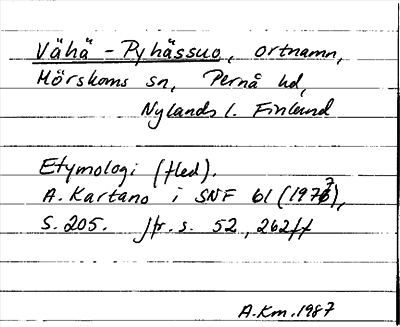 Vähä-Pyhässuo, ortnamn,
Mörskoms sn, Pernå hd,
Nylands l. Finland
Etymologi (fled).
A. Kartano i SNF 61 (1977),
S. 205. Jfr. s. 52, 262ff
A.Km.1987